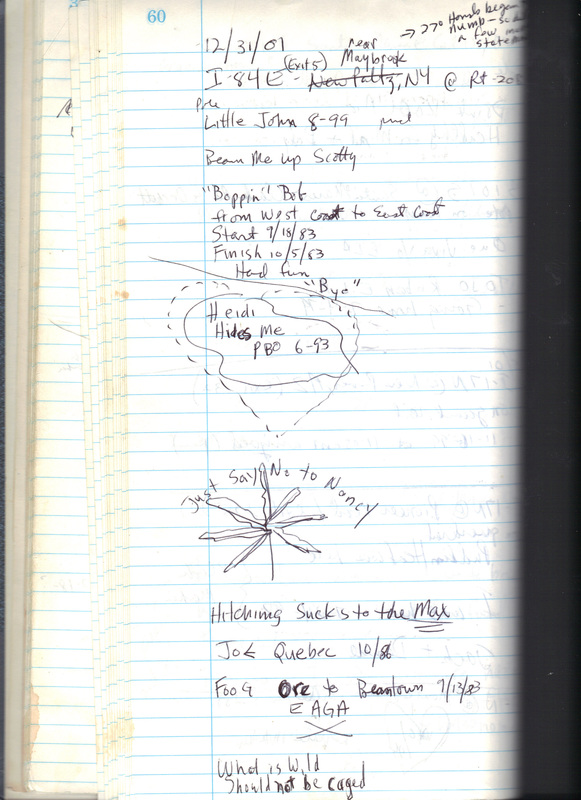 60
→ 27° Hands began
numb - so
a few more
statem
12/31/01
near
(Exit 5) Maybrook
I-84E - New Paltz, NY @ Rt-208
Little John 8-99
Beam Me up Scotty
"Boppin" Bob
from West Coast to East Coast
Start 9/18/83
Finish 10/5/83
Hard fun
"Bye"
Heidi
Hides Me
PBO 6-93
Just Say No to Nancy
Hitching Sucks to the Max
Joe Quebec 10/86
Foog Ore to Beantown 9/13/83
E AGA
What is Wild
Should not be caged